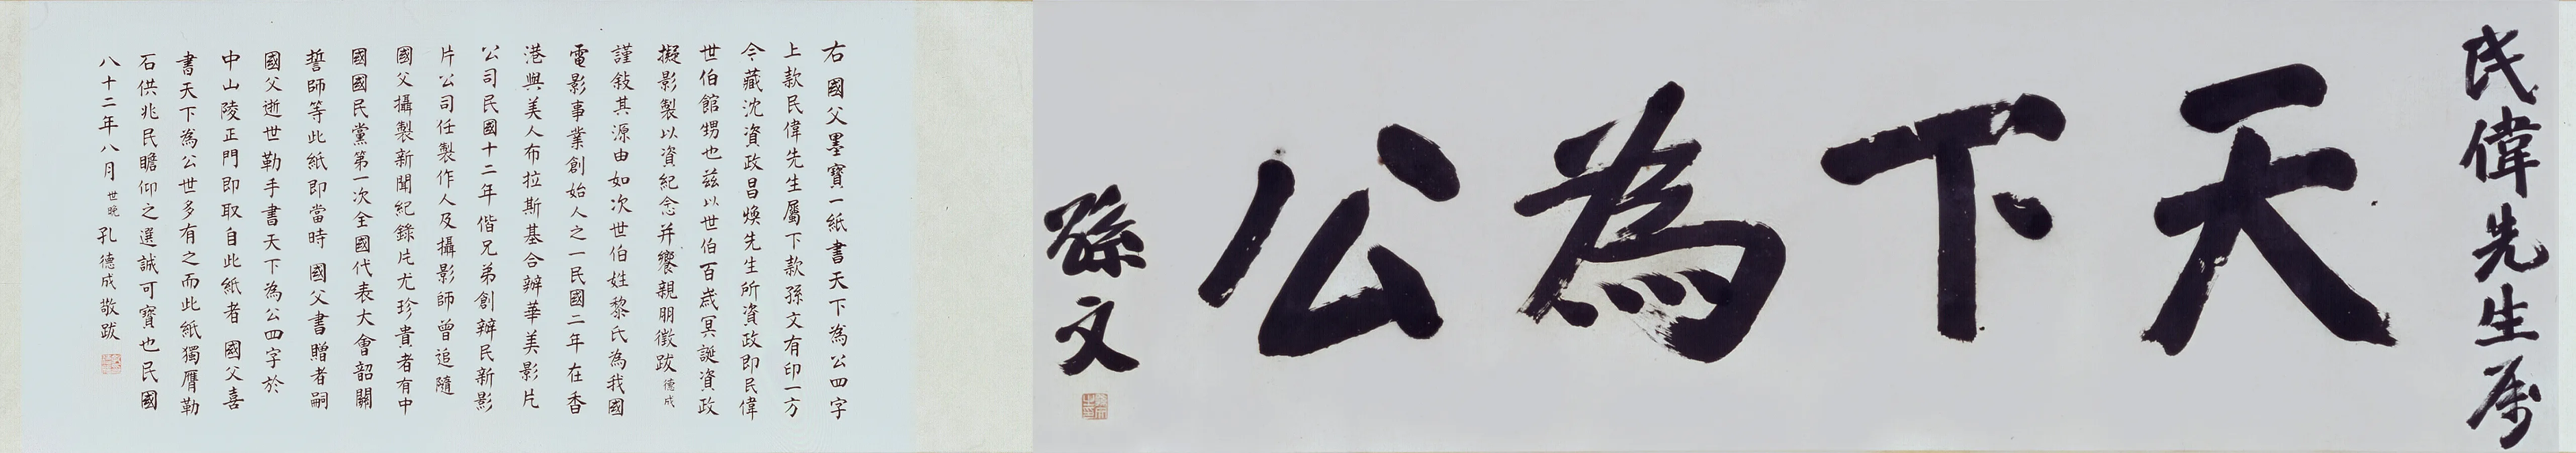 民偉先生属
天下為公
孫文
右 國父墨寶一紙書天下為公四字
上款民偉先生屬下款孫文有印一方
今藏沈資政昌煥先生所資政即民偉
世伯館甥也茲以世伯百歲冥誕資政
擬影製以資紀念并饗親朋徵跋德成
謹敍其源由如次世伯姓黎氏為我國
電影事業創始人之一民國二年在香
港與美人布拉斯基合辦華美影片
公司民國十二年偕兄弟創辦民新影
片公司任製作人及攝影師曾追隨
國父攝製新聞紀錄片尤珍貴者有中
國國民黨第一次全國代表大會韶關
誓師等此紙即當時 國父書贈者嗣
國父逝世勒手書天下為公四字於
中山陵正門即取自此紙者 國父喜
書天下為公世多有之而此紙獨膺勒
石供兆民瞻仰之選誠可寶也民國
八十二年八月 世晚 孔德成敬跋